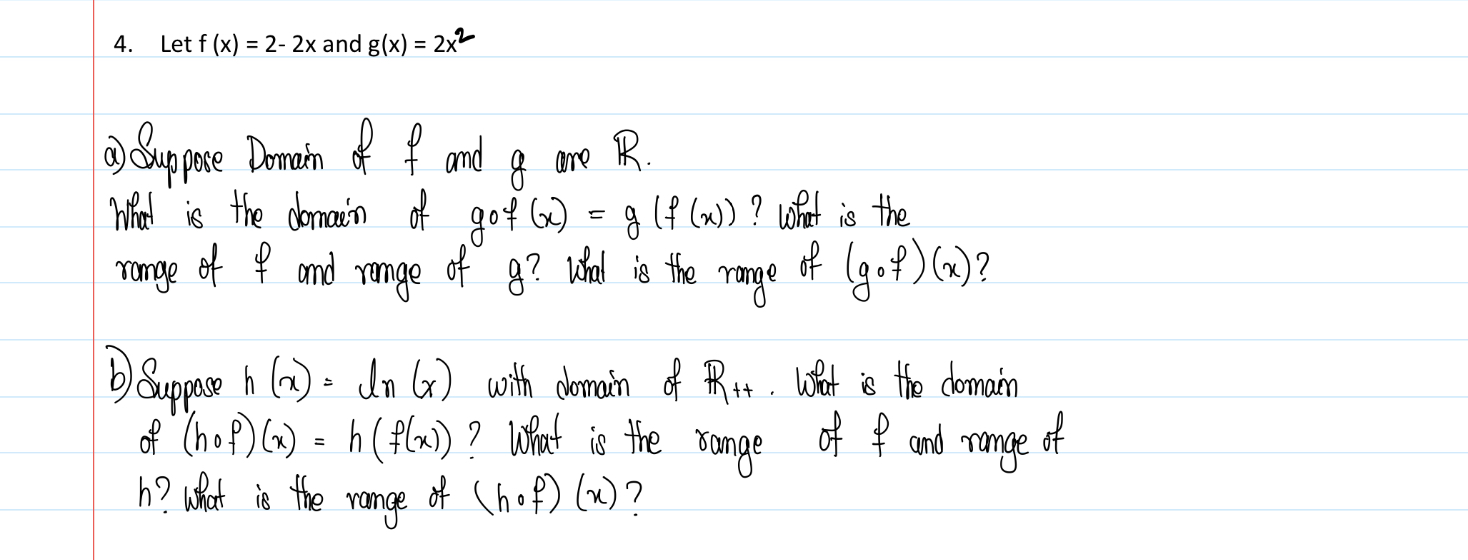 4. Let f (x) = 2- 2x and g(x) = 2x²
a) Suppose Domain of f and g are ℝ.
What is the domain of g∘f (x) = g (f (x)) ? What is the
range of f and range of g? What is the range of (g∘f)(x)?
b) Suppose h (x) = ln (x) with domain of ℝ₊₊. What is the domain
of (h∘f)(x) = h (f(x)) ? What is the range of f and range of
h? What is the range of (h∘f) (x) ?